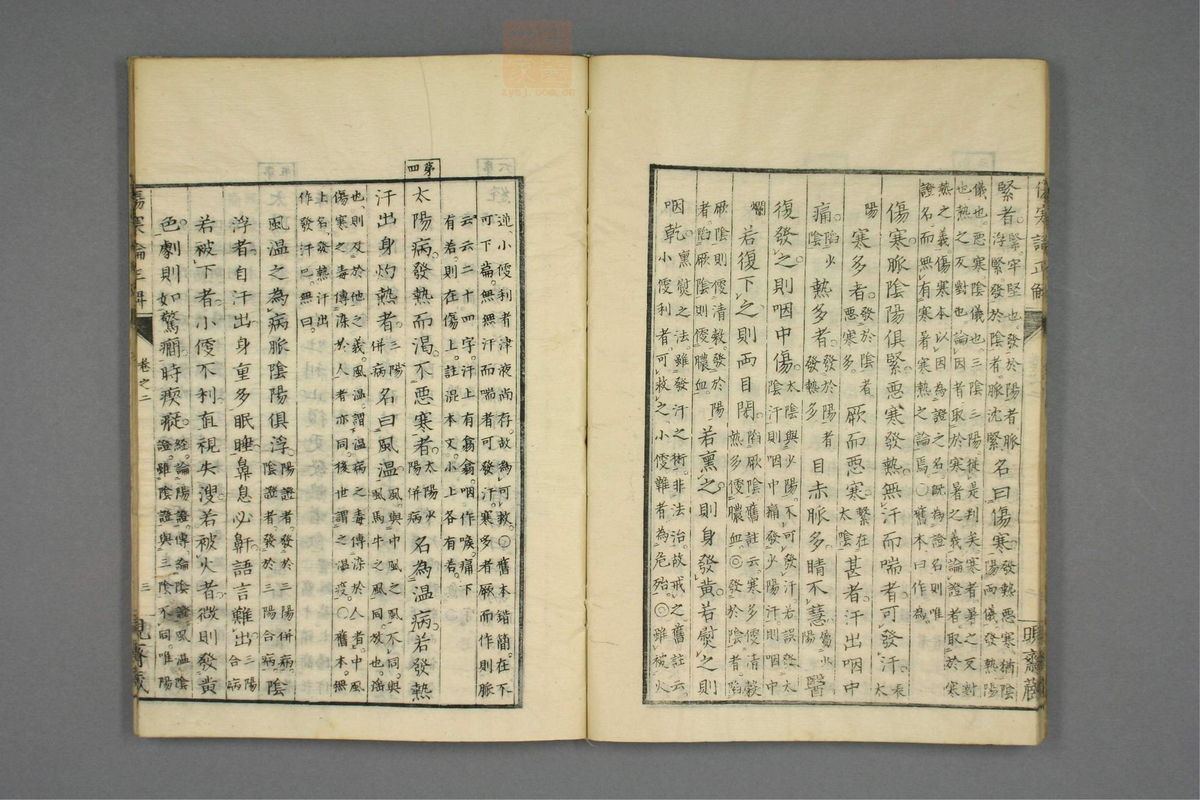 緊者緊牢堅也發於陽者脈
浮緊發於陰者脈沈緊名曰傷寒發熱惡寒猶陰
陽兩儀發熱陽
儀也惡寒陰儀也三陰三陽從是判矣寒者暑之反對
也熱之反對也論因者取於寒暑之義論證者取於寒
熱之義傷寒本以因為證之名既為證名則唯
證名而無有寒暑寒熱之論焉〇舊本曰作為
傷寒脈陰陽俱緊惡寒發熱無汗而喘者可發汗
太
陽
寒多者發於陰者
惡寒多厥而惡寒緊在
太陰甚者汗出咽中
痛陷少
陰熱多者發於陽者
發熱多目赤脈多睛不慧屬少
陽醫
復發之則咽中傷太陰與少陽不可發汗若誤發太
陰汗則咽中痛發少陽汗則咽中
爛
若復下之則兩目閉陷厥陰舊註云寒多便清穀
熱多便膿血◎發於陰者陷
厥陰則便清穀發於陽
者陷厥陰則便膿血若熏之則身發黃若熨之則
咽乾熏熨之法雖發汗之術非法治故戒之舊註云
小便利者可救之小便難者為危殆◎雖被火
逆小便利者津液尚存故為可救〇舊本錯簡在不
可下篇無無汗而喘者可發汗寒多者厥而作則脈
云云二十四字汗上有翕翕咽作喉痛下
有若則在傷上註混本文小上各有若
第四
太陽病發熱而渴不惡寒者太陽少
陽併病名為溫病若發熱
汗出身灼熱者三陽
併病名曰風溫風與中風之風不同與
風馬牛之風同放也淫
也則及於他之義風溫謂溫病之毒傳染於人者中風
傷寒之毒傳染於人者亦同後世謂之溫疫〇舊本無
上名發熱汗出
作發汗已無曰
風溫之為病脈陰陽俱浮陽證者發於三陽併病
陰證者發於三陽合病陰
浮者自汗出身重多眠睡鼻息必鼾語言難出三陽
合病
若被下者小便不利直視失溲若被火者微則發黃
色劇則如驚癇時瘈瘲經論陽證傳論陰證風溫陰
證雖陰證與三陰不同唯陽
卷之二
三